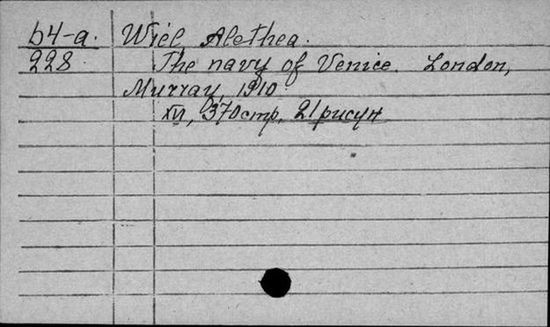 b4-a. Wiel Alethea.
228 The navy of Venice. London,
Murray, 1910
XII, 370 стр, 21 рисун